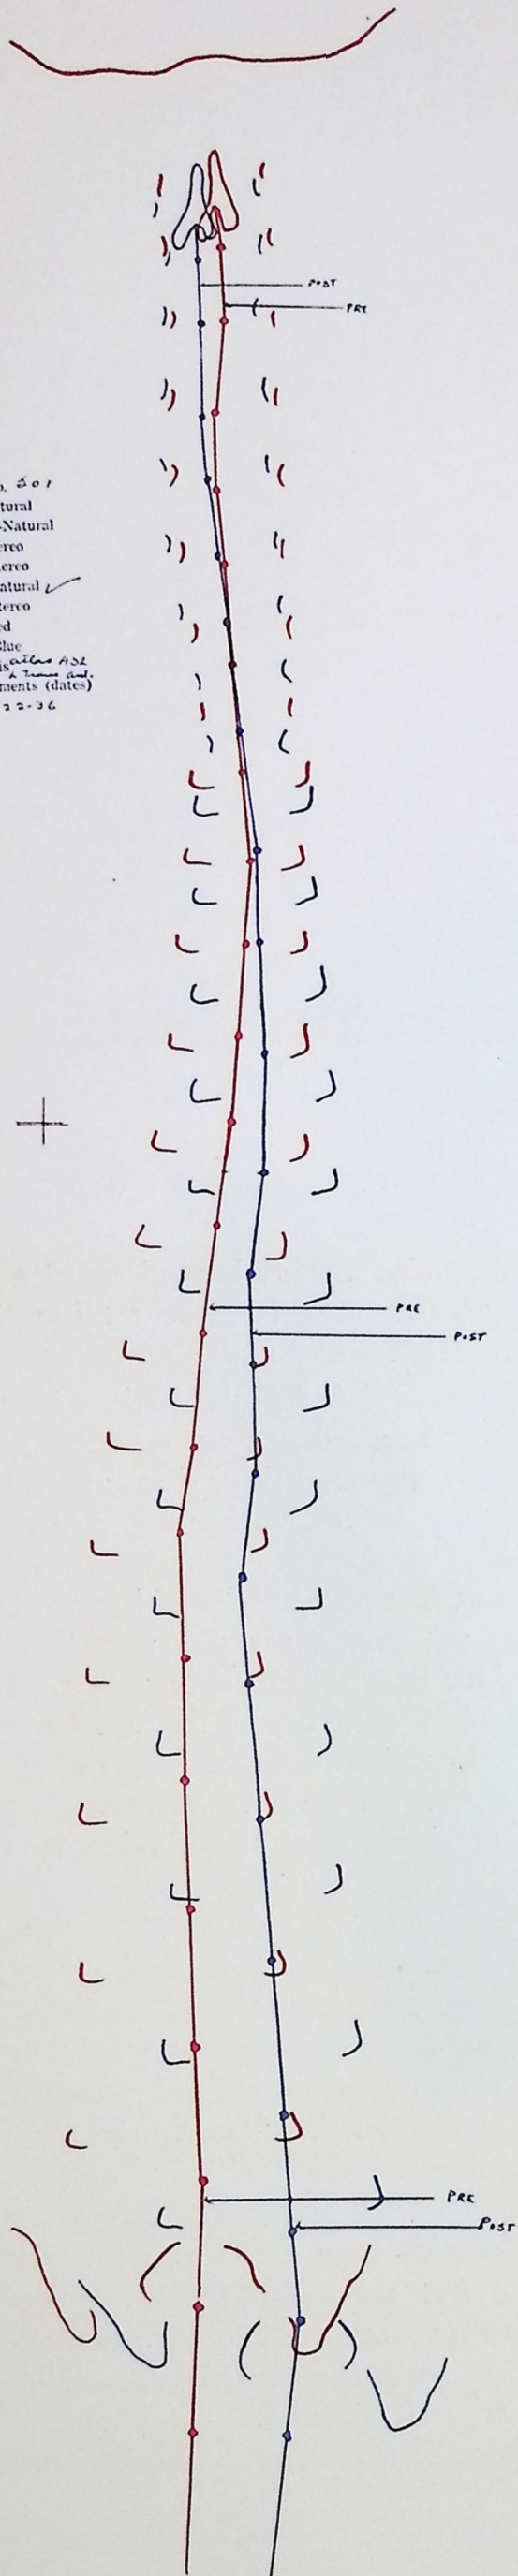 POST
PRE
501
tural
-Natural
ereo
ereo
atural ✓
tereo
ed
Blue
is atlas ASL
ments (dates)
22-36
PRE
POST
PRE
POST